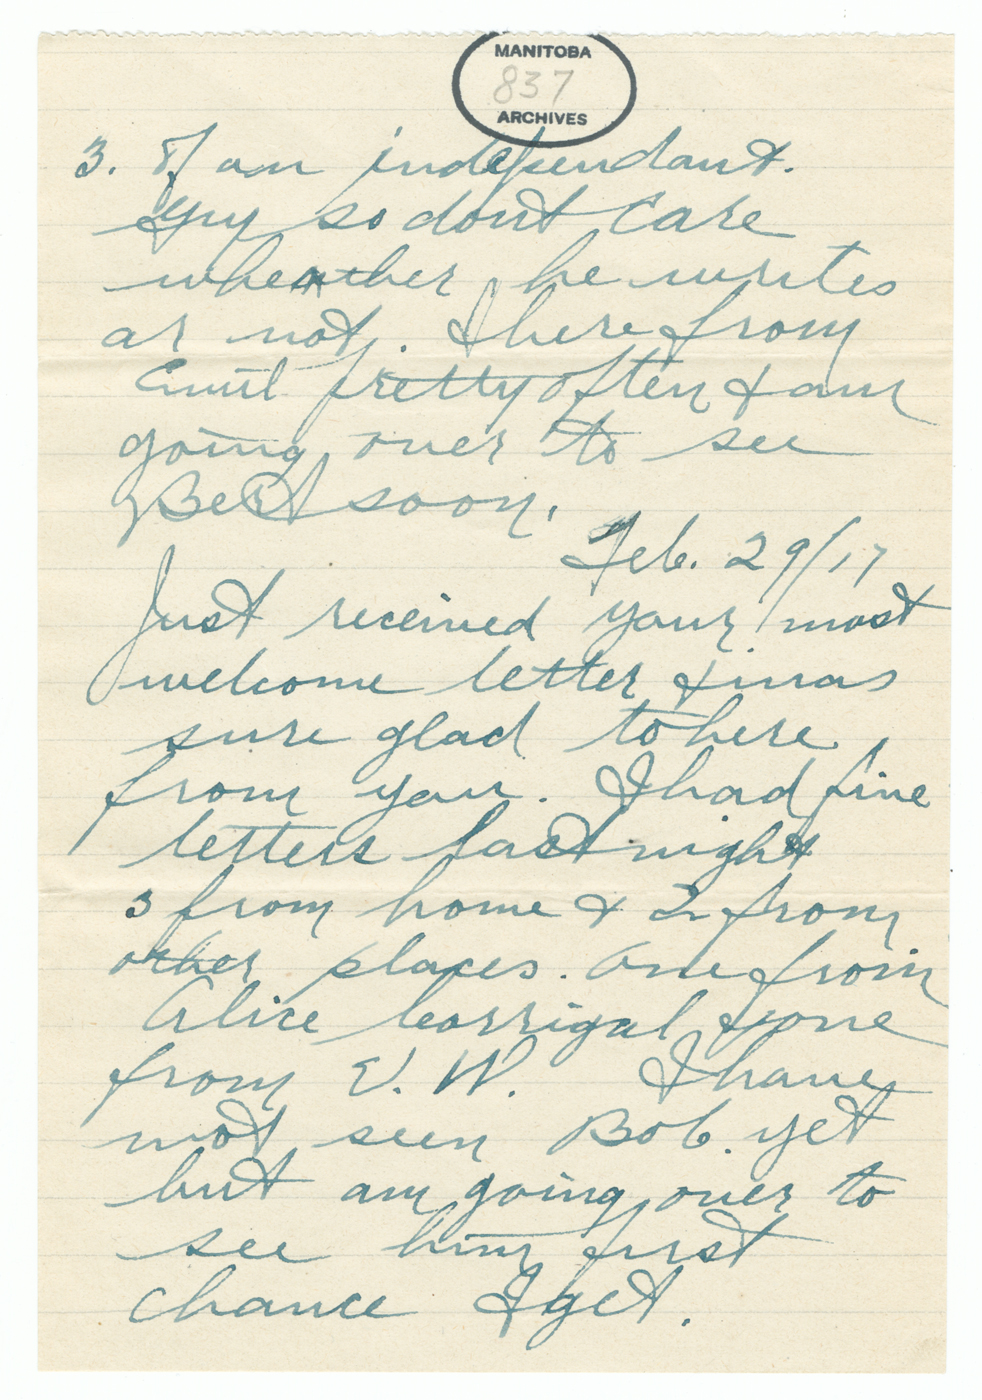 MANITOBA
837
ARCHIVES
3. If an independant.
guy so dont care
wheather he writes
or not. I here from
Emil pretty often & am
going over to see
Bert soon.
Feb. 29/17
Just received your most
welcome letter & was
sure glad to here
from you. I had fine
letters last night
3 from home & 2 from
other places. One from
Alice Corrigal & one
from E. W. I have
not seen Bob. yet
but am going over to
see him first
chance I get.